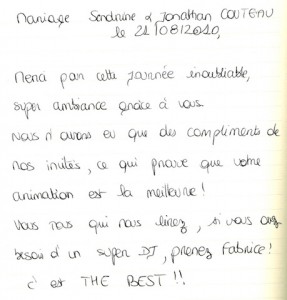 Mariage Sandrine & Jonathan COUTEAU
le 21/08/2010,
Merci pour cette journée inoubliable,
super ambiance grâce à vous
Nous n'avons eu que des compliments de
nos invités, ce qui prouve que votre
animation est la meilleure!
Vous tous qui nous lirez, si vous avez
besoin d'un super DJ, prenez Fabrice!
c'est THE BEST!!